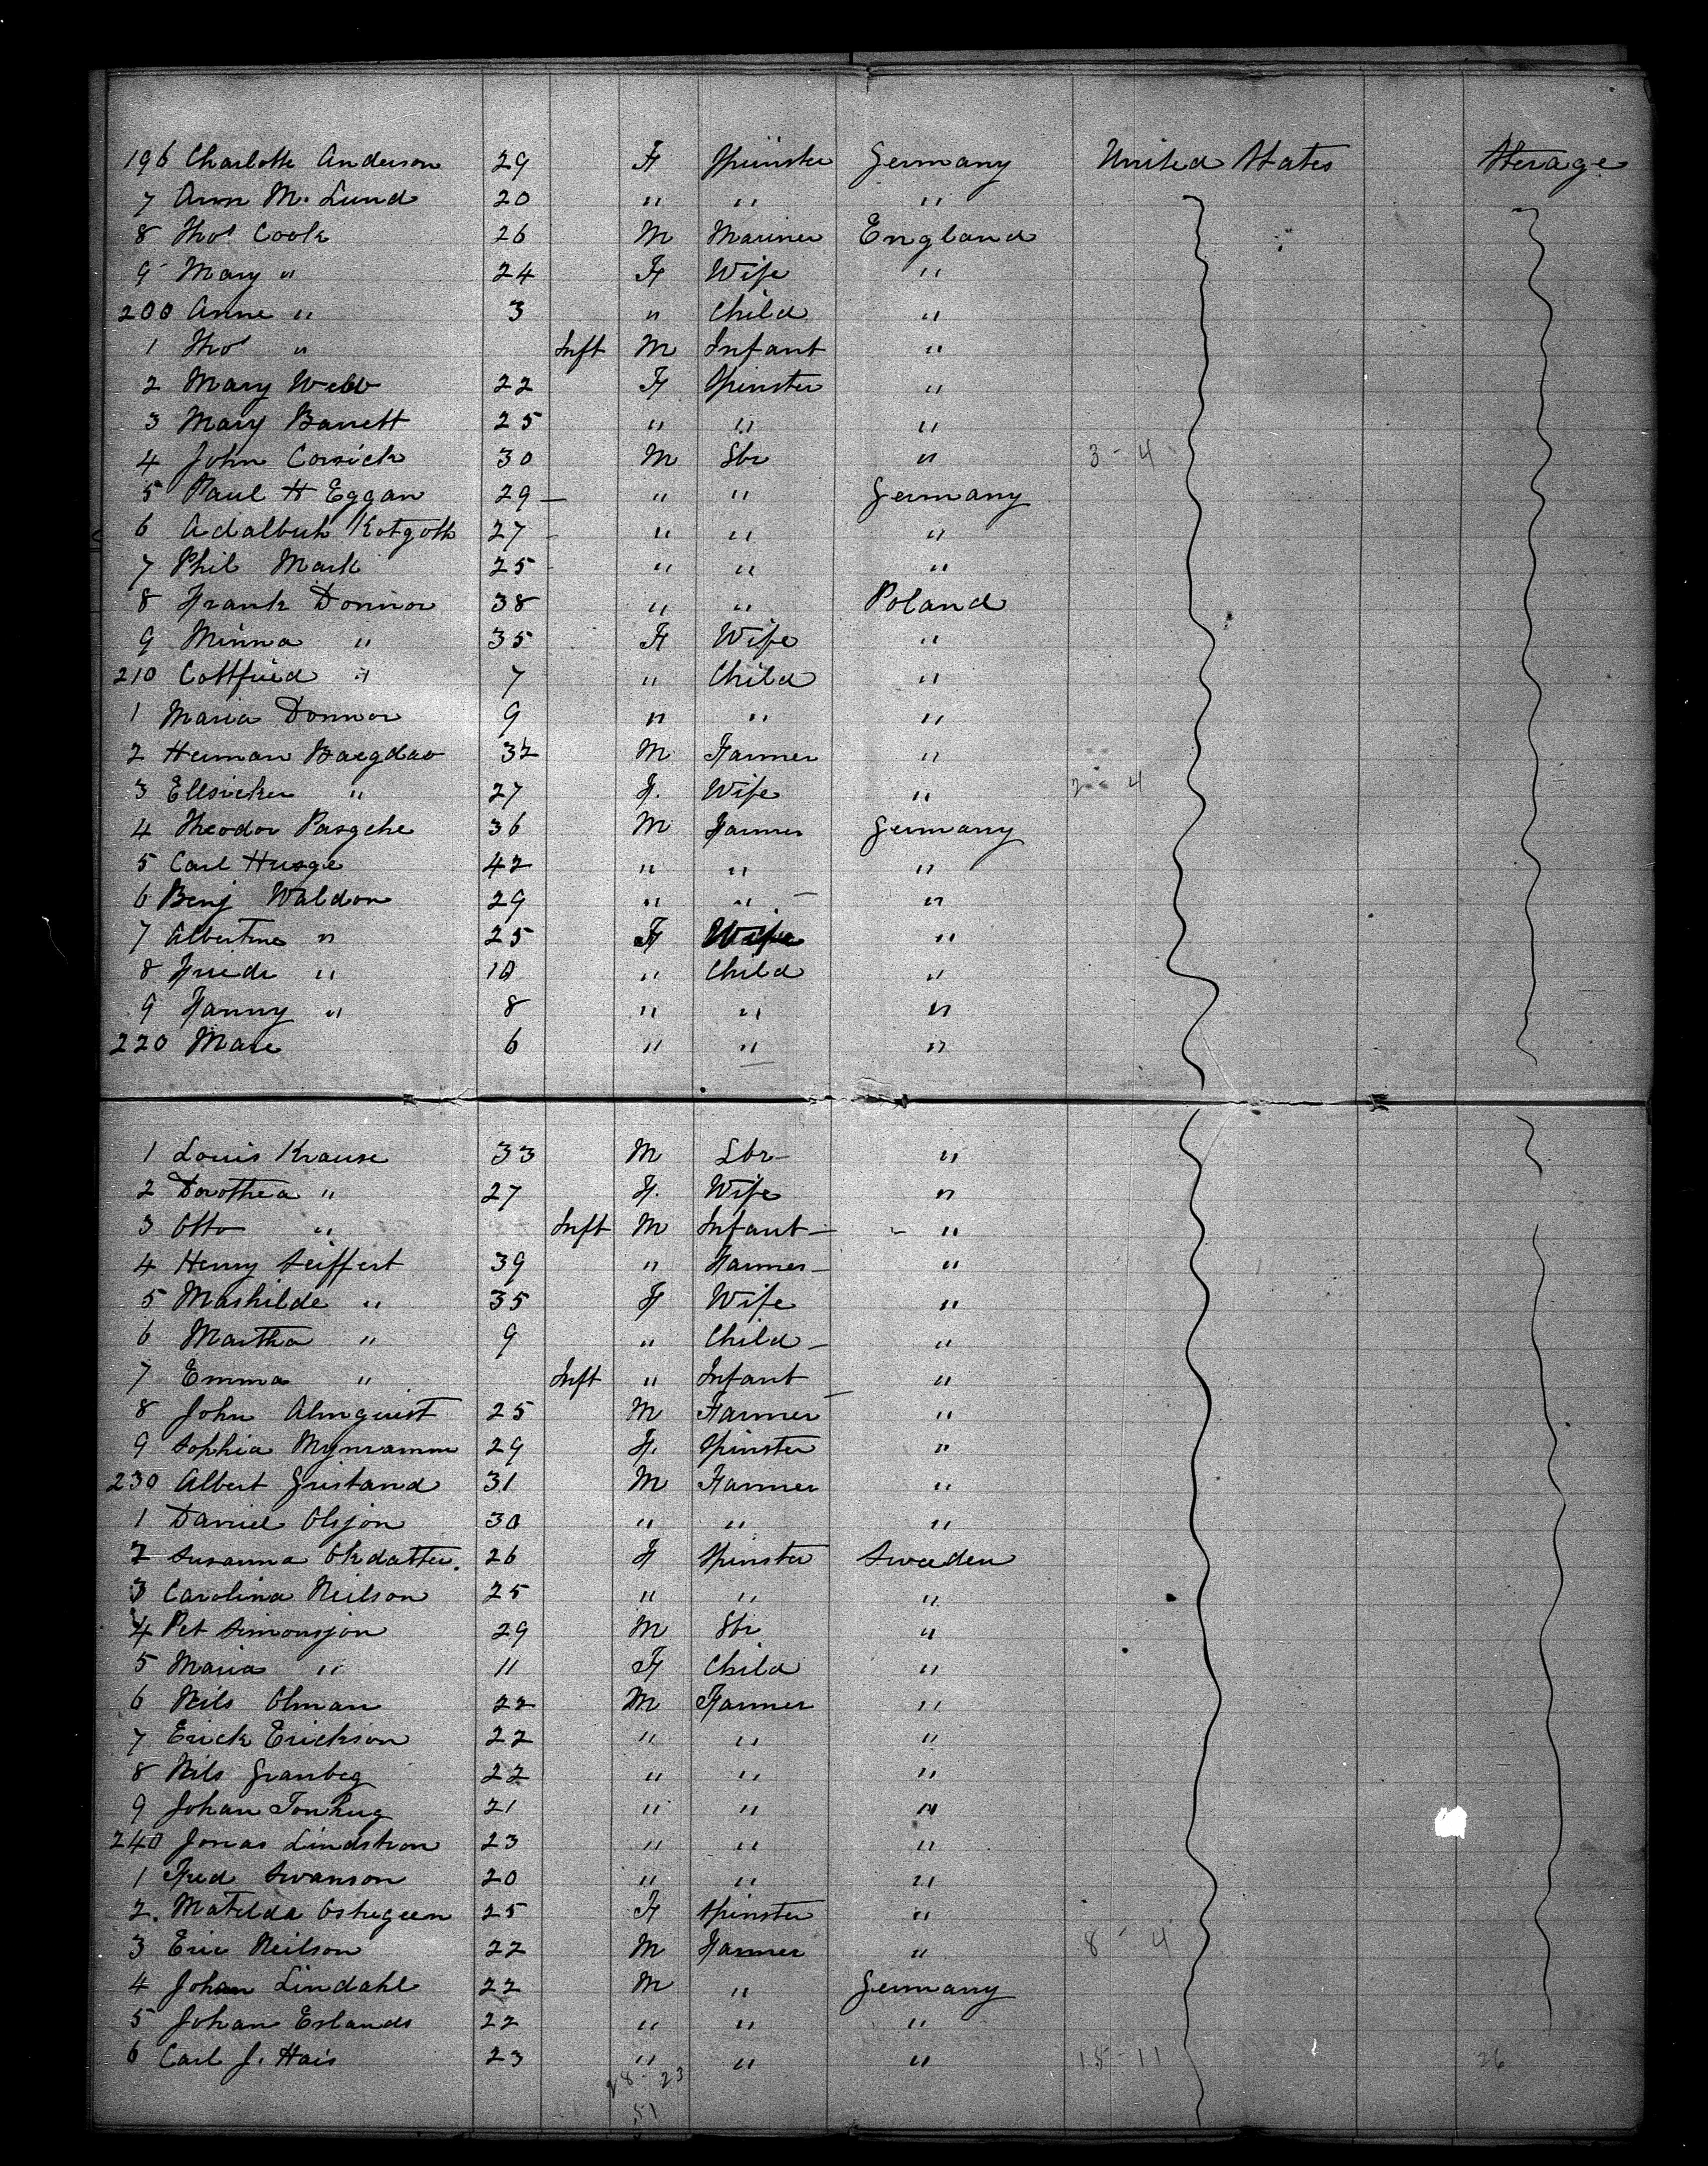 196 Charlotte Anderson 29 F Spinster Germany United States Sterage
7 Ann M. Lund 20 " " "
8 Thos Cook 26 M Mariner England
9 Mary " 24 F Wife "
200 Anne " 3 " Child "
1 Thos " Inft M Infant "
2 Mary Webb 22 F Spinster "
3 Mary Barrett 25 " " "
4 John Corsick 30 M Lbr " 3 - 4
5 Paul H Eggan 29 — " " Germany
6 27 - " " "
7 Phil Mark 25 - " " "
8 Frank Donnor 38 " " Poland
9 Minna " 35 F Wife "
210 Cottfried " 7 " Child "
1 Maria Donnor 9 " " "
2 Herman Baegdao 32 M Farmer "
3 " 27 F. Wife " 2 - 4
4 Theodor Pasgche 36 M Farmer Germany
5 Carl Husge 42 " " "
6 Benj Waldon 29 " " "
7 Albertine " 25 F Wife "
8 Friedr " 10 " Child "
9 Fanny " 8 " " "
220 Marie 6 " " "
1 Louis Krause 33 M Lbr "
2 Dorothea " 27 F. Wife "
3 Otto " Inft M Infant "
4 Henry Seiffert 39 " Farmer "
5 Mashilde " 35 F Wife "
6 Martha " 9 " Child "
7 Emma " Inft " Infant "
8 John Almquist 25 M Farmer "
9 Sophia 29 F. Spinster "
230 Albert Gristand 31 M Farmer "
1 Daniel Olsjon 30 " " "
2 Susanna Okdatter. 26 F Spinster Sweden
3 Carolina Neilson 25 " " "
4 Pet Simonsjon 29 M Lbr "
5 Maria " 11 F Child "
6 Nils Olman 22 M Farmer "
7 Erick Erickson 22 " " "
8 Nils Granbeg 22 " " "
9 Johan 21 " " "
240 Jonas Lindstron 23 " " "
1 Fred Swanson 20 " " "
2. Matilda Ostregeen 25 F Spinster "
3 Eric Neilson 22 M Farmer " 8 - 4
4 Johan Lindahl 22 M " Germany
5 Johan Eslands 22 " " "
6 Carl J. Hais 23 " " " 15 - 11 26
28 - 23
51